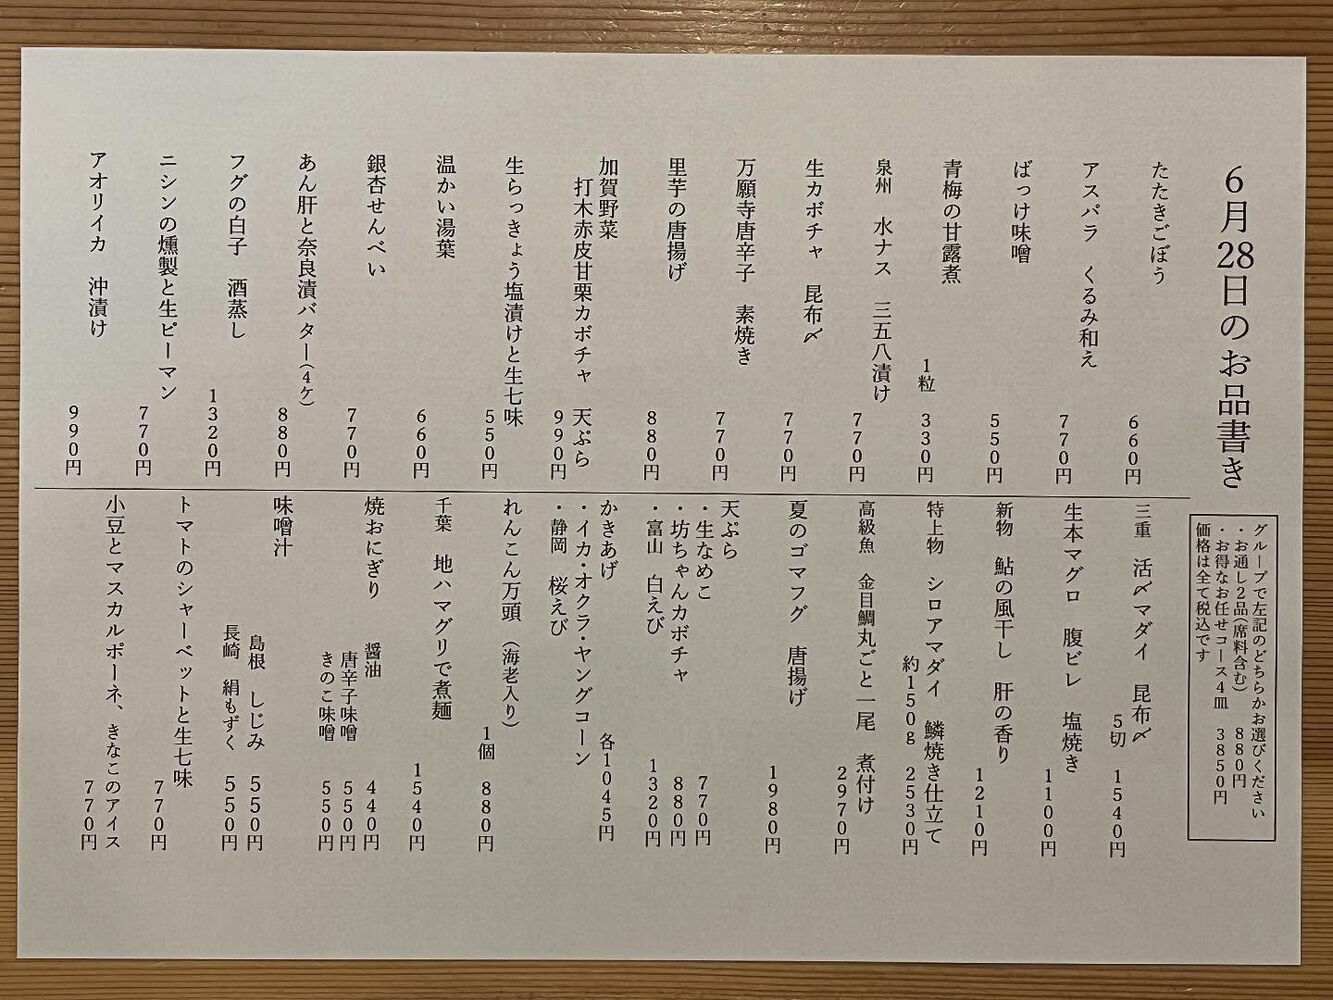 6月28日のお品書き
グループで左記のどちらかお選びください
・お通し2品(席料含む) 880円
・お得なお任せコース4皿 3850円
価格は全て税込です
たたきごぼう 660円
アスパラ くるみ和え 770円
ばっけ味噌 550円
青梅の甘露煮 1粒 330円
泉州 水ナス 三五八漬け 770円
生カボチャ 昆布〆 770円
万願寺唐辛子 素焼き 770円
里芋の唐揚げ 880円
加賀野菜
打木赤皮甘栗カボチャ 天ぷら 990円
生らっきょう塩漬けと生七味 550円
温かい湯葉 660円
銀杏せんべい 770円
あん肝と奈良漬バター(4ケ) 880円
フグの白子 酒蒸し 1320円
ニシンの燻製と生ピーマン 770円
アオリイカ 沖漬け 990円
三重 活〆マダイ 昆布〆 5切 1540円
生本マグロ 腹ビレ 塩焼き 1100円
新物 鮎の風干し 肝の香り 1210円
特上物 シロアマダイ 鱗焼き仕立て
約150g 2530円
高級魚 金目鯛丸ごと一尾 煮付け 2970円
夏のゴマフグ 唐揚げ 1980円
天ぷら
・生なめこ 770円
・坊ちゃんカボチャ 880円
・富山 白えび 1320円
かきあげ 各1045円
・イカ・オクラ・ヤングコーン
・静岡 桜えび
れんこん万頭 (海老入り) 1個 880円
千葉 地ハマグリで煮麺 1540円
焼おにぎり 醤油 440円
唐辛子味噌 550円
きのこ味噌 550円
味噌汁
島根 しじみ 550円
長崎 絹もずく 550円
トマトのシャーベットと生七味 770円
小豆とマスカルポーネ、きなこのアイス 770円